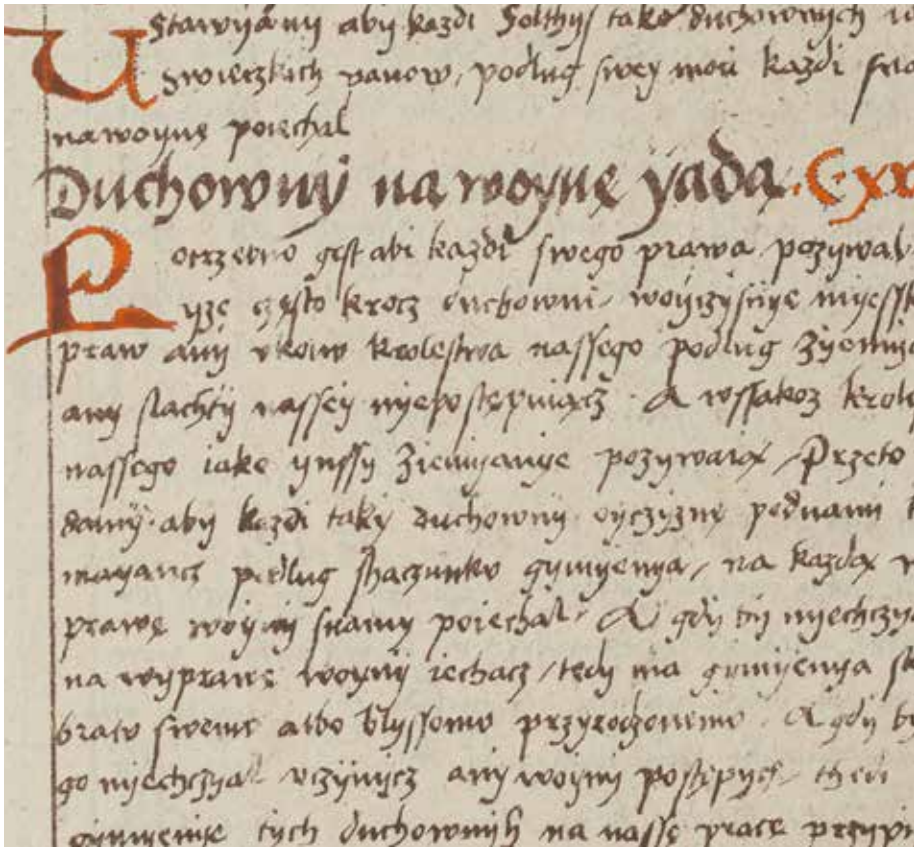 Ustawyamy aby każdi Solthys tako duchownych
Swieczkich panow, podług swey moci każdi
na woynę poiechal
Duchowny na woynę yadą. C. xx
Potrzebno gest abi każdi swego prawa pozywal
yzę często krocz duchowni woyczysnye myessk
praw any vkow krolestwa nassego podług Zyemy
any slachty nassey nyepostępuiącz. A wssakoz krole
nassego iako ynssy Ziemyanye pozywaią, Przeto
damy. aby każdi taky duchowny oyczyznę podnami
mayancz podlug shaczunku gymyenya, na każdą
prawę woyny snamy poiechal. A gdy by nyechczya
na wyprawę woyny iechacz, tedy ma gymyenya
bratu swemu albo blysshemu przyrodzonemu. A gdy by
go nyechczyal vczynycz any woyny postępycz, thedi
gymyenye tych duchownych na nassę pracę przypi